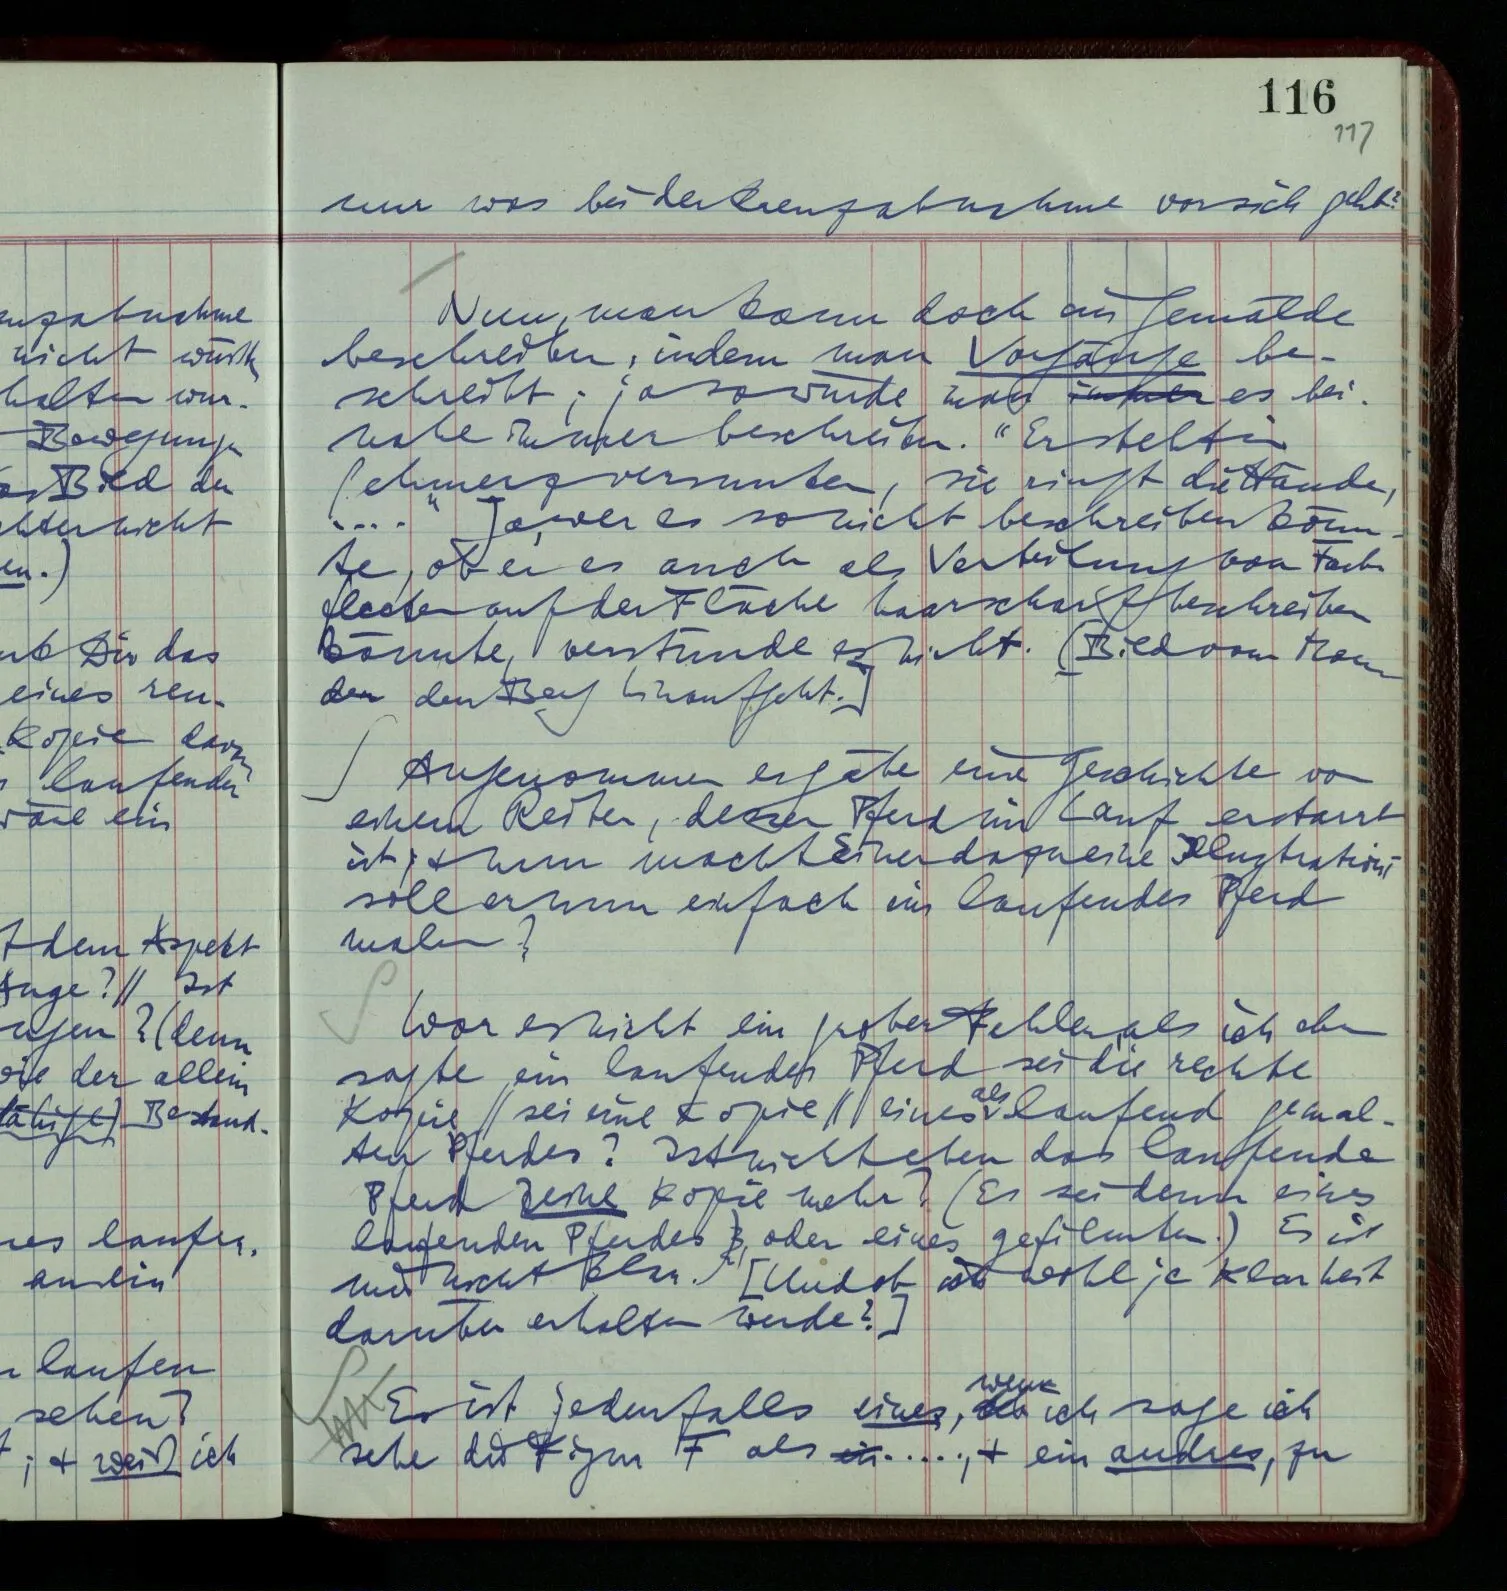 116
117
nur was bei der Kreuzabnahme vor sich geht?
Nun, man kann doch ein Gemälde
beschreiben, indem man Vorgänge be-
schreibt; ja so würde man immer es bei-
nahe immer beschreiben. “Er steht in
Schmerz versunken, sie ringt die Hände,
....” Ja, wer es so nicht beschreiben könn-
te, ob er es auch als Verteilung von Farb-
flecken auf der Fläche haarscharf beschreiben
könnte, verstünde es nicht. (Bild vom Mann
der den Berg hinaufgeht.]
∫ Angenommen es gäbe eine Geschichte von
einem Reiter, dessen Pferd im Lauf erstarrt
ist; & nun macht Einer dazu eine Illustration:
soll er nun einfach ein laufendes Pferd
malen?
War es nicht ein grober Fehler, als ich eben
sagte ein laufendes Pferd sei die rechte
Kopie // sei eine Kopie // eines als laufend gemal-
ten Pferdes? Ist nicht eben das laufende
Pferd keine Kopie mehr? (Es sei denn eines
laufenden Pferdes, oder eines gefilmten.) Es ist
mir nicht klar. [Und ob ich wohl je Klarheit
darüber erhalten werde?]
Es ist jedenfalls eines, wenn ich sage ich
sehe die Figur F als ein ....., & ein andres, zu
enzabnahme
nicht wirk
halten wur-
Bewegung
das Bild der
chter nicht
en.)
Dir das
eines ren-
Kopie davon
laufenden
wäre ein
dem Aspekt
Auge? // Ist
ngen? (denn
wie der allein
Bestand-
nes laufen,
laufen
sehen?
; & weiß ich